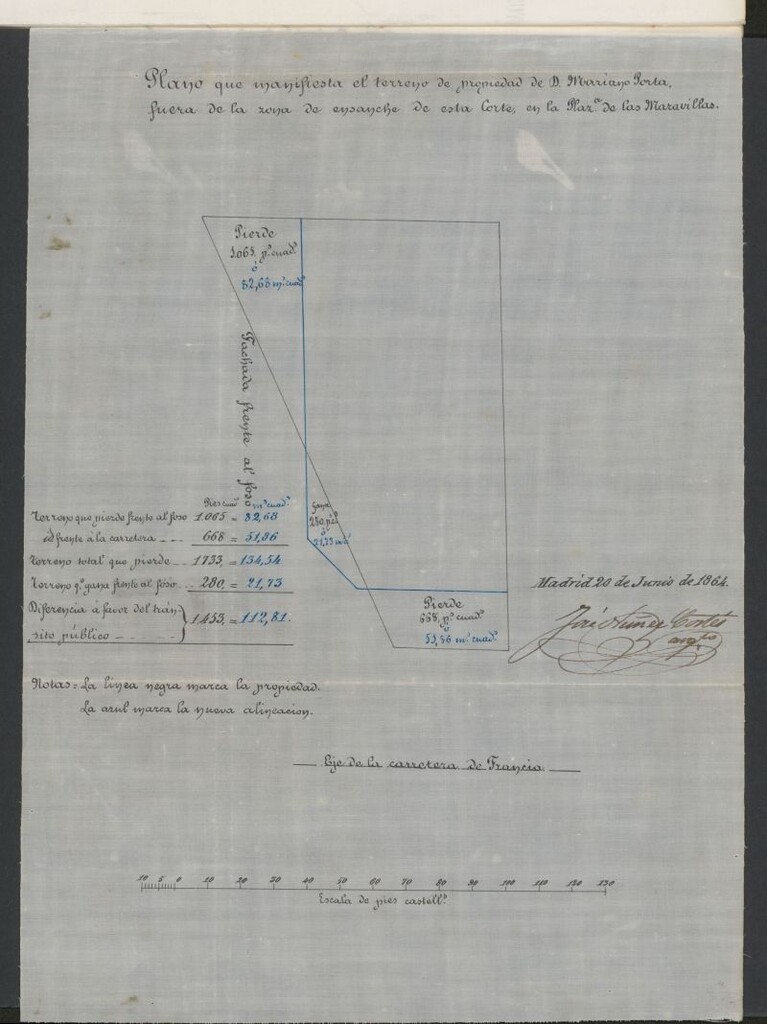 Plano que manifiesta el terreno de propiedad de D. Mariano Porta,
fuera de la zona de ensanche de esta Corte, en la Plaz.ª de las Maravillas.
Pierde
1065, p.s cuad.s
ó
82,68 m.s cuad.s
Fachada frente al foso
Gana
280 p.s c.
ó
21,73 m.s c.
Pierde
668, p.s cuad.s
ó
51,86 m.s cuad.s
Pies cuad.s m.s cuad.s
Terreno que pierde frente al foso 1.065 = 82,68
id frente á la carretera _ _ _ 668 = 51,86
Terreno total que pierde _ _ 1733, = 134,54
Terreno q.e gana frente al foso _ _ 280, = 21,73
Diferencia a favor del tran-
sito público _ _ _ _ } 1453, = 112,81.
Madrid 20 de Junio de 1864.
José Nuñez Cortés
arq.to
Notas = La linea negra marca la propiedad.
La azul marca la nueva alineacion.
Eje de la carretera de Francia
10 5 0 10 20 30 40 50 60 70 80 90 100 110 120 130
Escala de pies castell.s